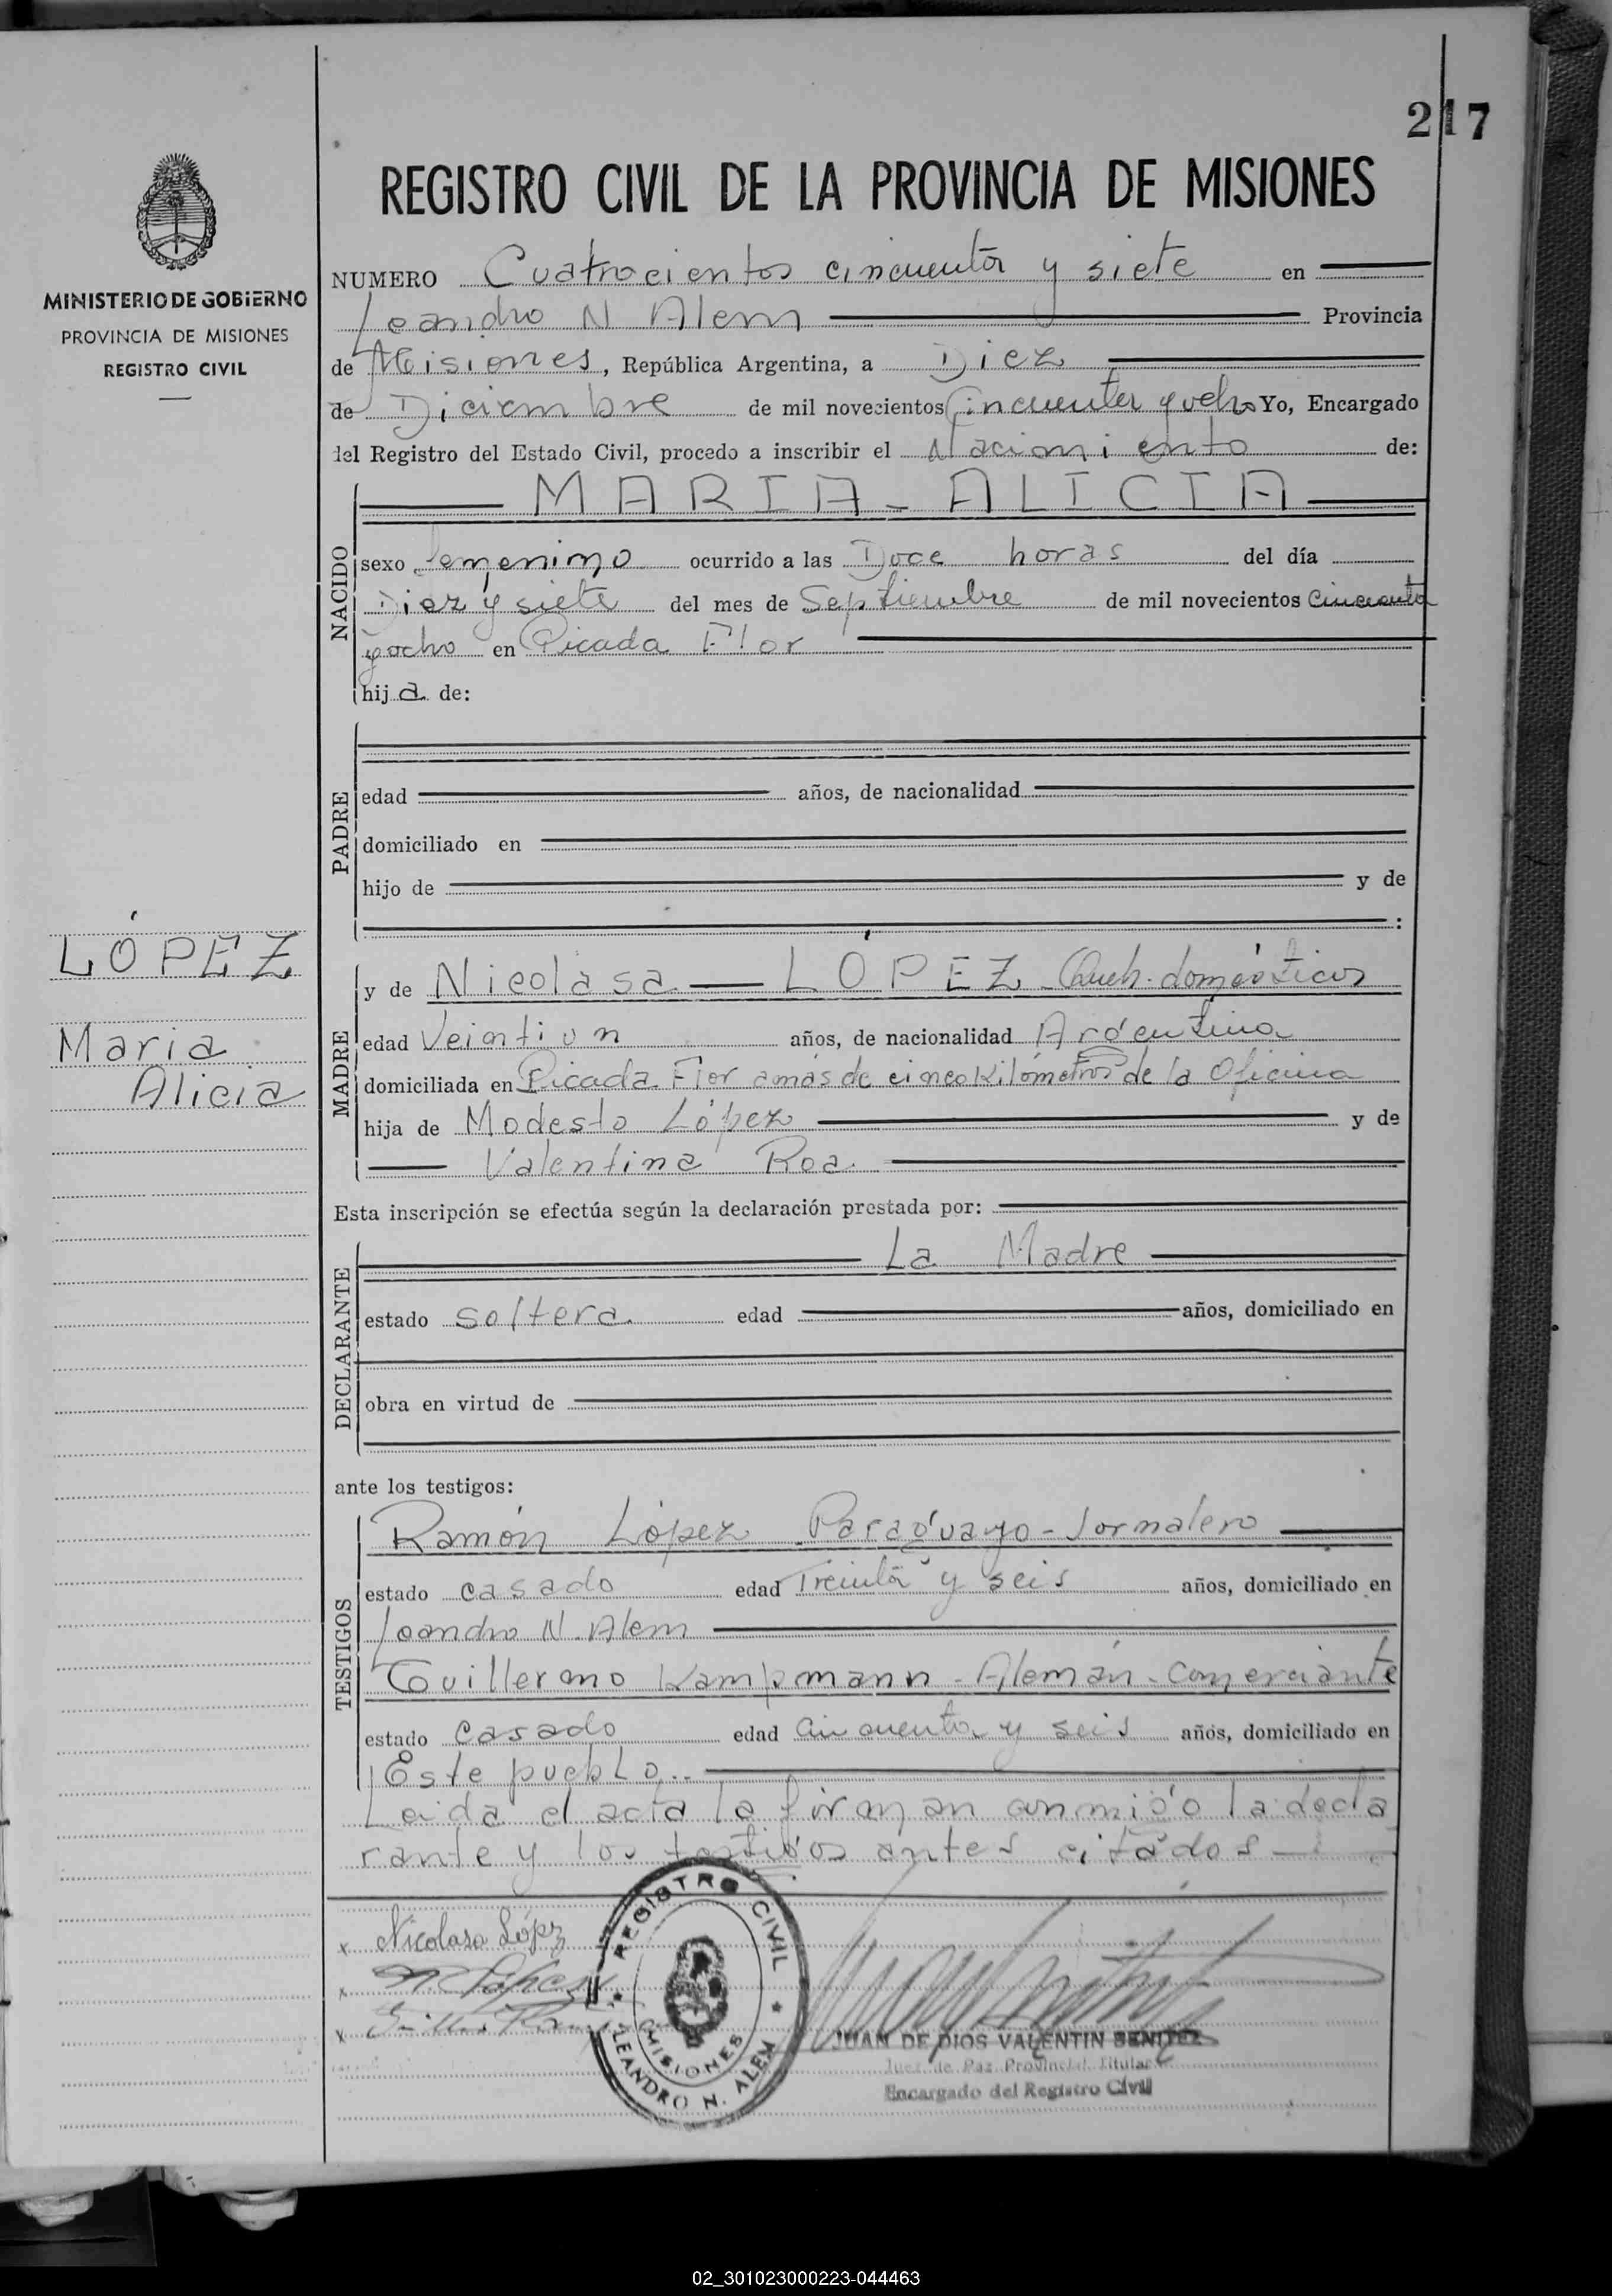 217
REGISTRO CIVIL DE LA PROVINCIA DE MISIONES
MINISTERIO DE GOBIERNO
PROVINCIA DE MISIONES
REGISTRO CIVIL
NUMERO Cuatrocientos cincuenta y siete en
Leandro N Alem Provincia
de Misiones, República Argentina, a Diez
de Diciembre de mil novecientos Cincuenta y ocho Yo, Encargado
del Registro del Estado Civil, procedo a inscribir el Nacimiento de:
NACIDO
MARIA - ALICIA
sexo femenino ocurrido a las Doce horas del día
Diez y siete del mes de Septiembre de mil novecientos Cincuenta
y ocho en Picada Flor
hija de:
PADRE
edad años, de nacionalidad
domiciliado en
hijo de y de
:
LÓPEZ
Maria
Alicia
MADRE
y de Nicolasa — LÓPEZ - Queh. domésticos
edad Veintiun años, de nacionalidad Argentina
domiciliada en Picada Flor a más de cinco Kilómetros de la Oficina
hija de Modesto López y de
Valentina Roa
Esta inscripción se efectúa según la declaración prestada por:
DECLARANTE
La Madre
estado soltera. edad años, domiciliado en
obra en virtud de
ante los testigos:
TESTIGOS
Ramón López Paraguayo - Jornalero
estado casado edad Treinta y seis años, domiciliado en
Leandro N. Alem
Guillermo Kampmann - Alemán - Comerciante
estado casado edad cincuenta y seis años, domiciliado en
Este pueblo..
Leida el acta la firman conmigo la decla
rante y los testigos antes citados
x Nicolasa López
x R López
x
REGISTRO CIVIL
MISIONES
LEANDRO N. ALEM
JUAN DE DIOS VALENTIN BENITEZ
Juez de Paz Provincial Titular
Encargado del Registro Civil
02_301023000223-044463